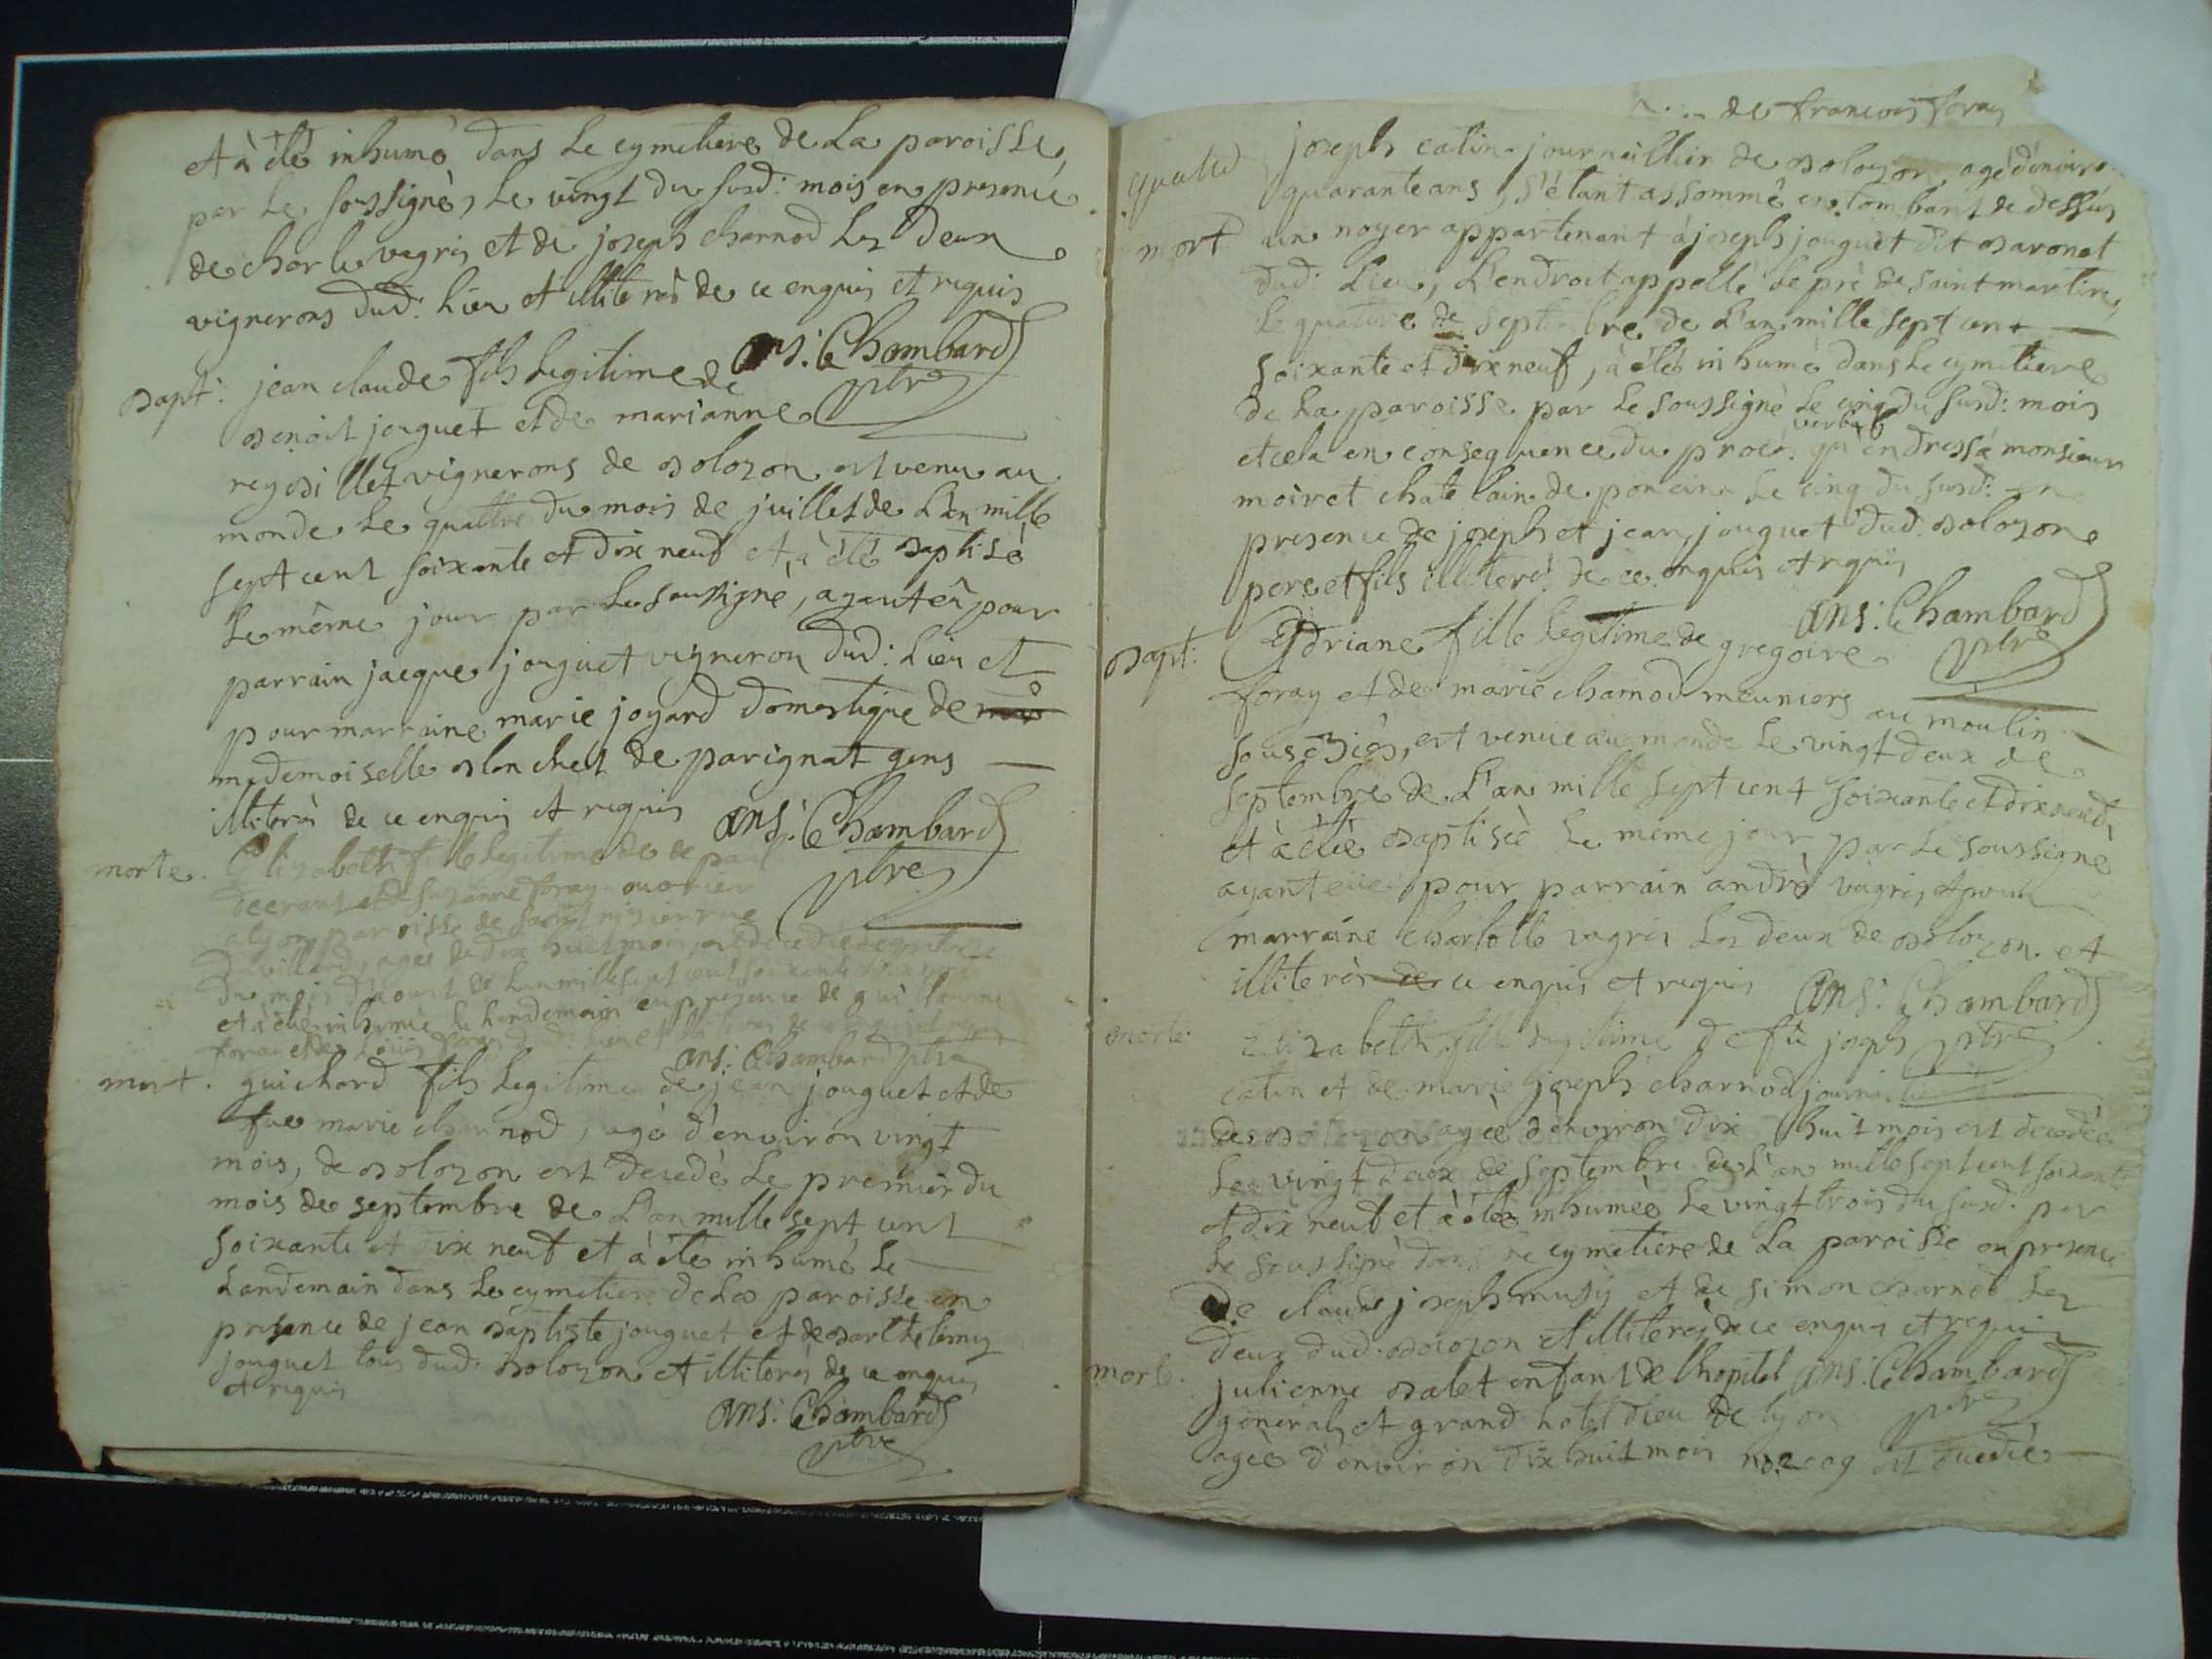 et à été inhumé dans le cymetiere de la paroisse
par le soussigné, le vingt du susd: mois en presence
de charle vagris et de joseph charnod les deux
vignerons dud: lieu et illiterés de ce enquis et requis
ans: Chambard ptre
bapt: jean claude fils legitime de
benoit jouguet et de marianne
reybillet vignerons de bolozon est venu au
monde le quattre du mois de juillet de l'an mille
sept cent soixante et dix neuf et à été baptisé
le même jour par le soussigné, ayant eû pour
parrain jacque jouguet vigneron dud: lieu et
pour marraine marie joyard domestique de
mademoiselle blonchet de parignat gens
illiterés de ce enquis et requis ans: Chambard
ptre
morte. Elizabeth fille legitime de paul
et de suzanne foray ouvrier
a lyon paroisse de saint nizier rue
agée de dix huit mois, est decedée le
du mois d'aoust de l'an mille sept cent soixante et dix neuf
et à été inhumée le landemain en presence de guillaume
foray et de louis foray dud: lieu et illiterés de ce enquis et requis
ans: Chambard ptre
mort. guichard fils legitime de jean jouguet et de
fue marie charnod, agé d'environ vingt
mois, de bolozon est decedé le premier du
mois de septembre de l'an mille sept cent
soixante et dix neuf et à été inhumé le
landemain dans le cymetiere de la paroisse en
presence de jean baptiste jouguet et de barthelemy
jouguet tous dud. bolozon et illiterés de ce enquis
et requis
ans: Chambard
ptre
de francois foray
joseph catin journaillier de bolozon, agé d'enviro
quarante ans, s'étant assommé en tombant de dessus
mort un noyer appartenant à joseph jouguet dit baronet
dud: lieu, l'endroit appellé le pré de saint martin,
le quattre de septembre de l'an mille sept cent
soixante et dix neuf, à été inhumé dans le cymetiere
de la paroisse par le soussigné le cinq du susd: mois
verbal
et cela en consequence du procé. qu'en dressa monsieur
moiret chatelain de poncin le cinq du susd: en
presence de joseph et jean jouguet dud. bolozon
pere et fils illiterés de ce enquis et requis
ans: Chambard
ptre
bapt: Adriane fille legitime de gregoire
foray et de marie charnod meuniers au moulin
sous, est venue au monde le vingt deux de
septembre de l'an mille sept cent soixante et dix neuf,
et à été baptisée le meme jour par le soussigné
ayant eüe pour parrain andré vagris, et pour
marraine charlotte vagris les deux de bolozon et
illiterés de ce enquis et requis ans: Chambard
ptre
morte: Elizabeth fille legitime de fû joseph
catin et de marie joseph charnod
de bolozon agée d'environ dix huit mois est decedée
le vingt deux de septembre de l'an mille sept cent soixante
et dix neuf et à été inhumée le vingt trois du susd. par
le soussigné dans le cymetiere de la paroisse en presence
de claude joseph musy et de simon charnod les
deux dud. bolozon et illiterés de ce enquis et requis
morte. julienne balet enfant de l'hopital ans: Chambard
général et grand hotel dieu de lyon ptre
agée d'environ dix huit mois est decedée